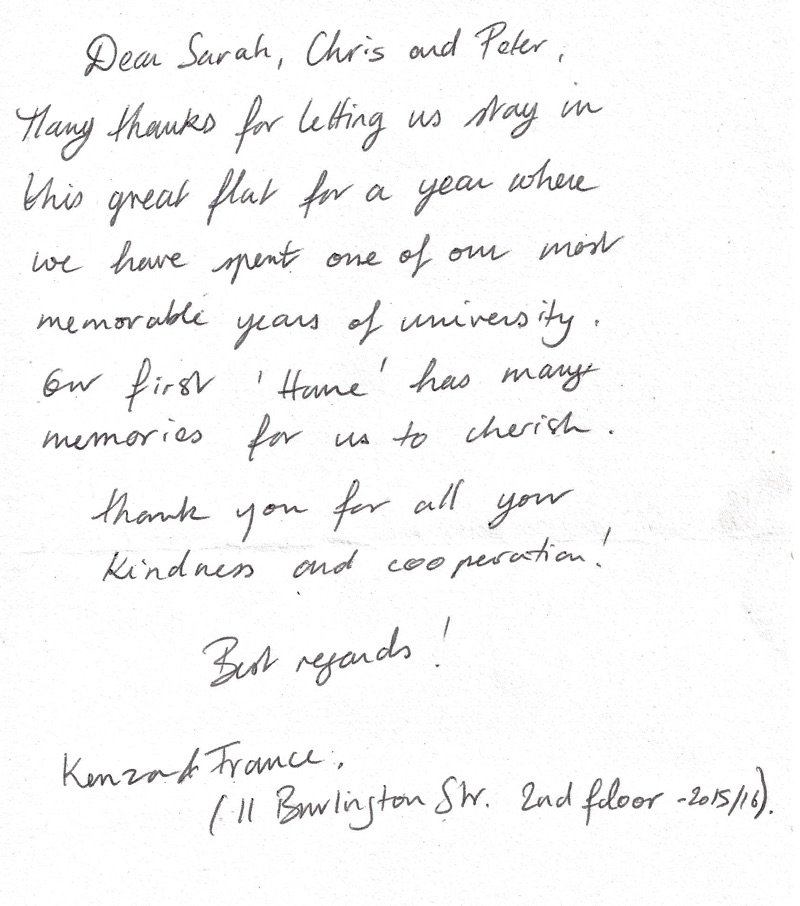 Dear Sarah, Chris and Peter,
Many thanks for letting us stay in
this great flat for a year where
we have spent one of our most
memorable years of university.
Our first 'Home' has many
memories for us to cherish.
thank you for all your
kindness and cooperation!
Best regards!
Kenza & France.
(11 Burlington Str. 2nd floor -2015/16).